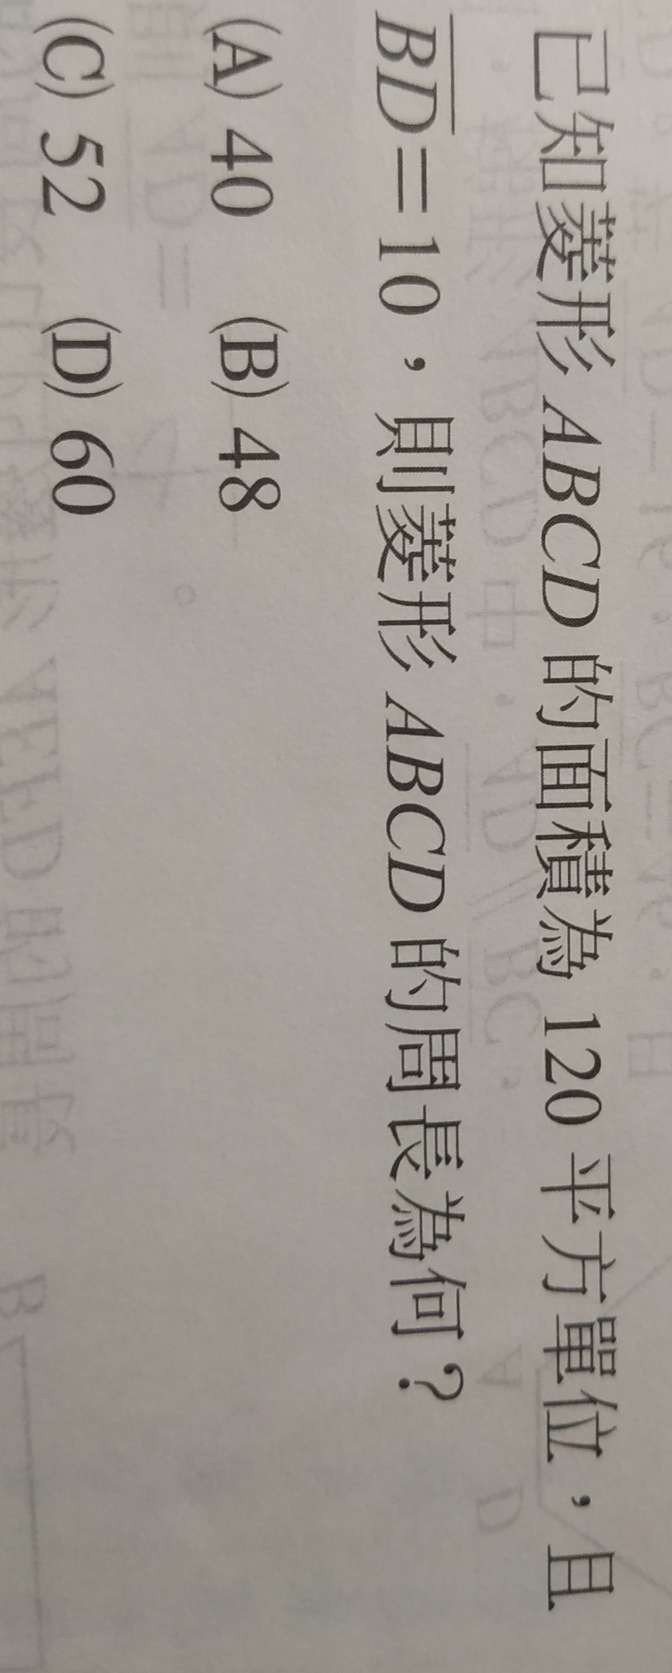 已知菱形 ABCD 的面積為 120 平方單位，且
BD=10，則菱形 ABCD 的周長為何？
(A) 40 (B) 48
(C) 52 (D) 60